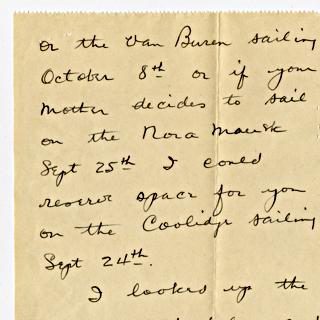 or the Van Buren sailing
October 8th or if your
Mother decides to sail
on the Nora Maersk
Sept 25th I could
reserve space for you
on the Coolidge sailing
Sept 24th.
I looked up the